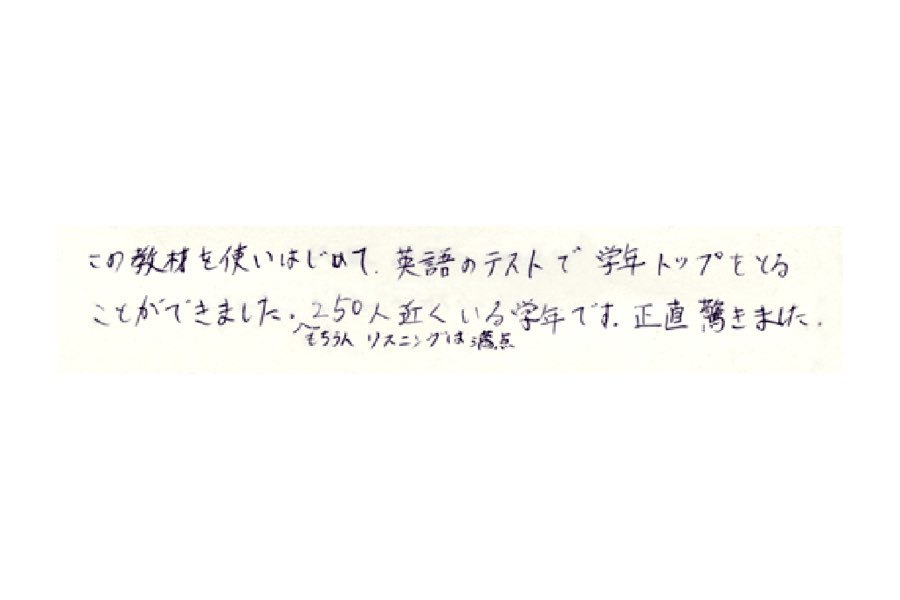 この教材を使いはじめて、英語のテストで学年トップをとる
ことができました。250人近くいる学年です。正直驚きました。
もちろん リスニングは満点